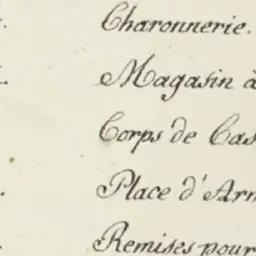 Charonnerie.
Magasin à
Corps de Cas
Place d'Arm
Remises pour